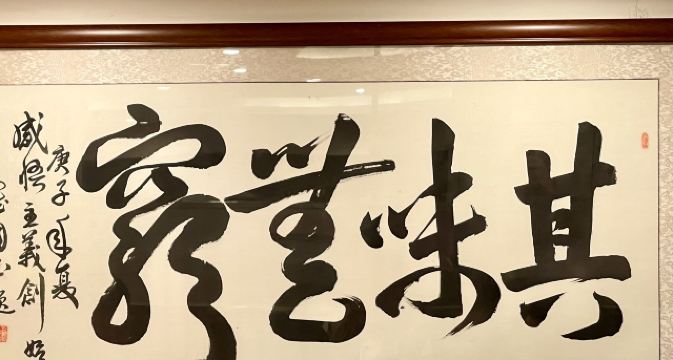 其味無窮
庚子年夏
感悟主義創始